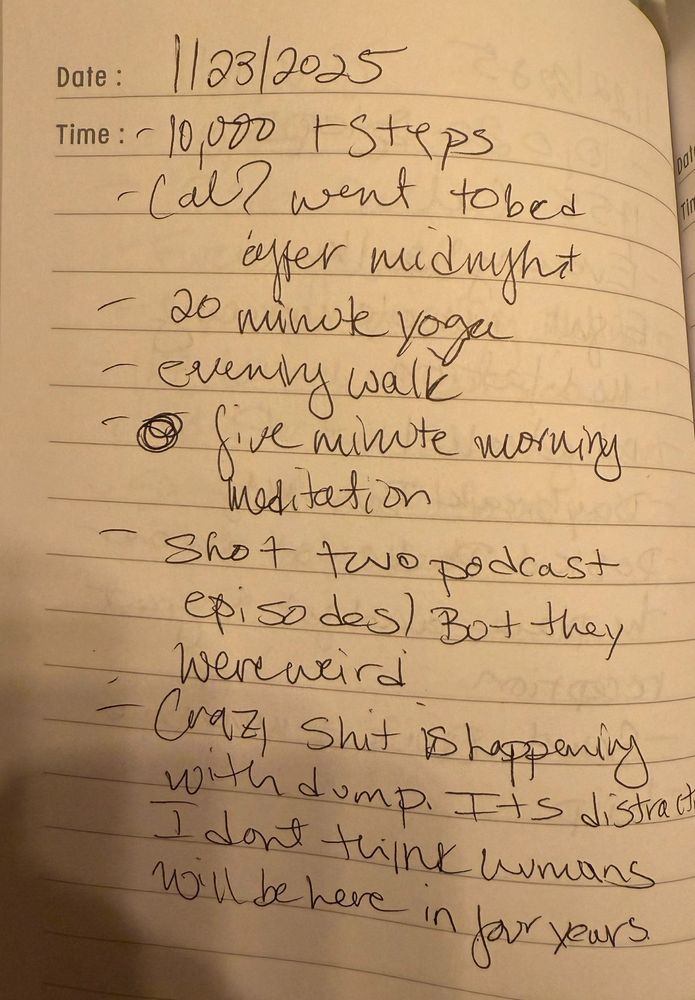 Date : 11/23/2025
Time : - 10,000 + steps
- Cal? went to bed
after midnight
- 20 minute yoga
- evening walk
- five minute morning
meditation
- Shot two podcast
episodes) Bot they
were weird
- Crazy shit is happening
with dump. Its distract
I dont think humans
will be here in four years.
Dat
Tim